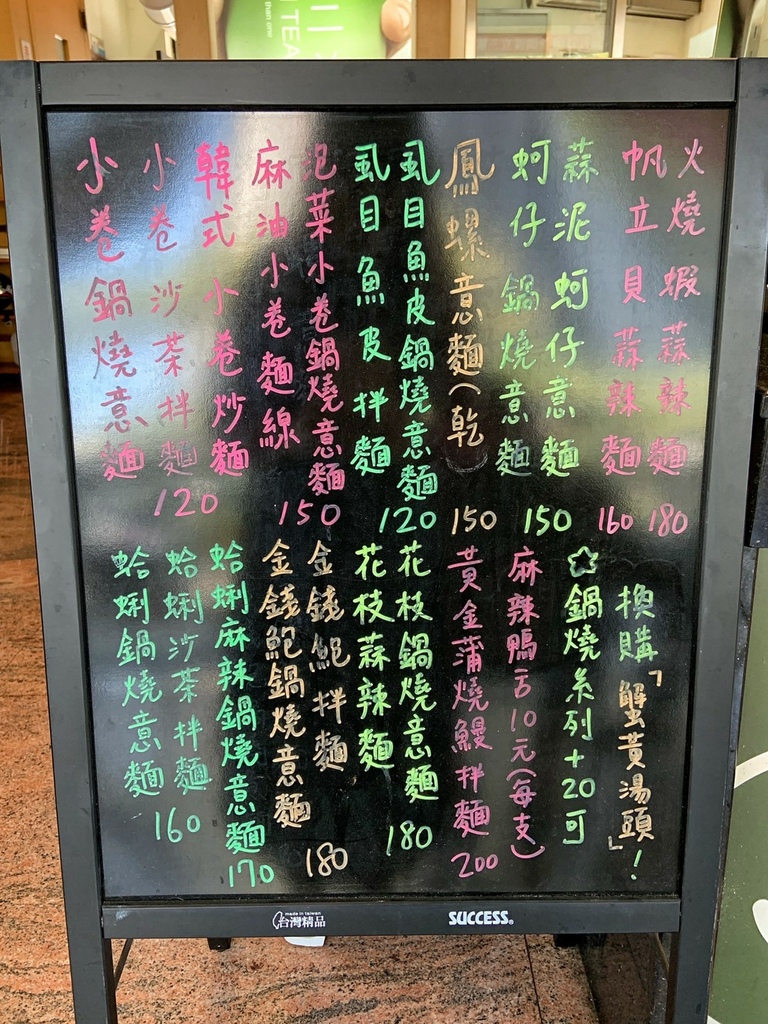 TEA
than one
火燒蝦蒜辣麵 180
帆立貝蒜辣麵 160
蒜泥蚵仔意麵
蚵仔鍋燒意麵
150
鳳螺意麵(乾
150
虱目魚皮鍋燒意麵
虱目魚皮拌麵
120
泡菜小卷鍋燒意麵
麻油小卷麵線
150
韓式小卷炒麵
小卷沙茶拌麵
小卷鍋燒意麵
120
換購「蟹黃湯頭」!
鍋燒系列+20可
麻辣鴨舌10元(每支)
黃金蒲燒鰻拌麵
200
花枝鍋燒意麵
花枝蒜辣麵
180
金錢鮑拌麵
金錢鮑鍋燒意麵
180
蛤蜊麻辣鍋燒意麵
170
蛤蜊沙茶拌麵
蛤蜊鍋燒意麵
160
made in taiwan
台灣精品
SUCCESS®